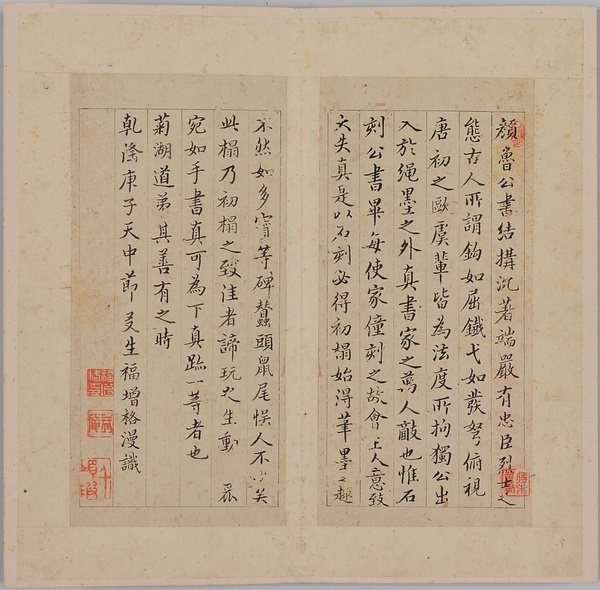 顏魯公書結搆沉著端嚴有忠臣烈士之
態古人所謂鈎如屈鐵戈如發弩俯視
唐初之歐虞輩皆為法度所拘獨公出
入於繩墨之外真書家之萬人敵也惟石
刻公書畢每使家僮刻之故會主人意致
大失真是以石刻必得初搨始得筆墨之趣
不然如多寶等碑蠶頭鼠尾悮人不少矣
此榻乃初榻之致佳者諦玩久生動
宛如手書真可為下真跡一等者也
菊湖道弟其善有之時
乾隆庚子天中節 生福增格漫識